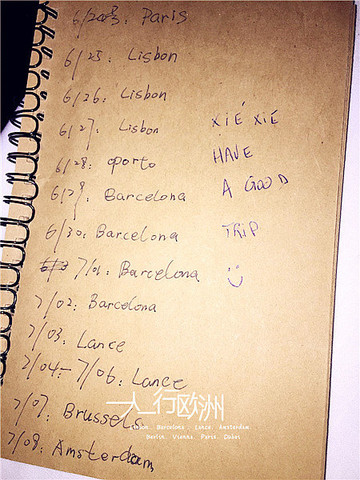 Paris
6/25: Lisbon
6/26: Lisbon
6/27: Lisbon
XIÉ XIÉ
6/28: oporto
HAVE
6/29: Barcelona
A GOOD
6/30: Barcelona
TRIP
7/01: Barcelona
7/02: Barcelona
7/03: Lance
7/04-7/06: Lance
7/07: Brussels
7/09: Amsterdam
一人行欧洲
Lisbon. Barcelona. Lance. Amsterdam.
Berlin. Vienna. Paris. Dubai